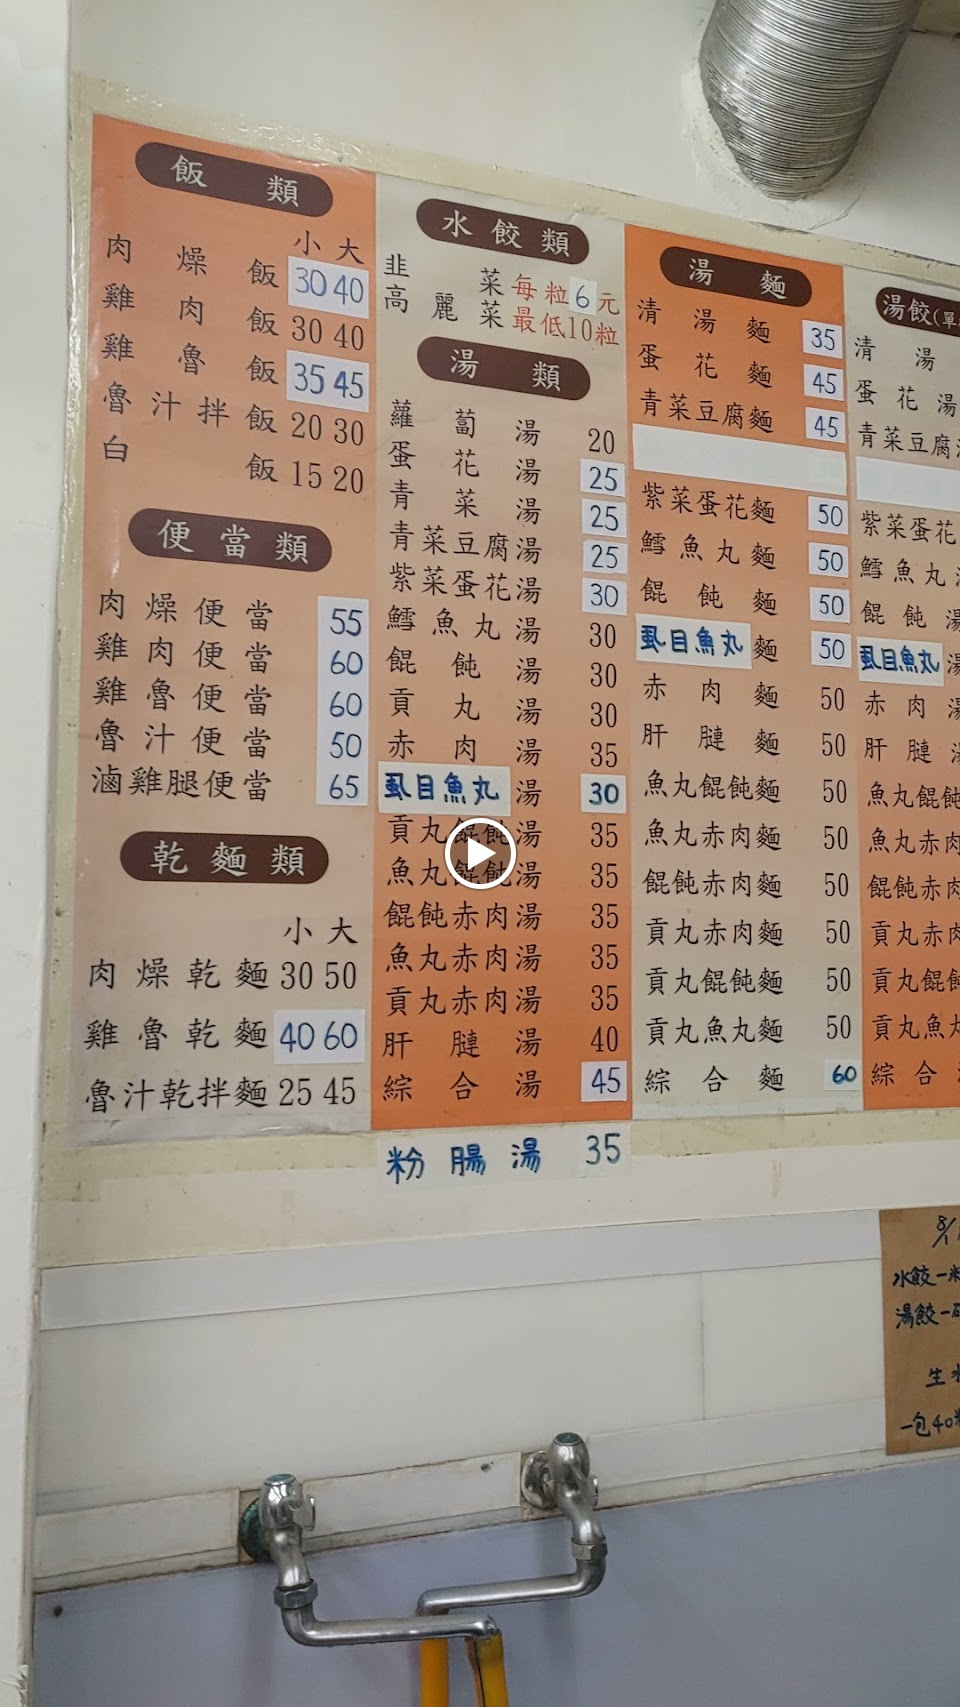 飯類
小 大
肉燥飯 30 40
雞肉飯 30 40
雞魯飯 35 45
魯汁拌飯 20 30
白飯 15 20
便當類
肉燥便當 55
雞肉便當 60
雞魯便當 60
魯汁便當 50
滷雞腿便當 65
乾麵類
小 大
肉燥乾麵 30 50
雞魯乾麵 40 60
魯汁乾拌麵 25 45
水餃類
韭菜 每粒6元
高麗菜 最低10粒
湯類
蘿蔔湯 20
蛋花湯 25
青菜湯 25
青菜豆腐湯 25
紫菜蛋花湯 30
鱈魚丸湯 30
餛飩湯 30
貢丸湯 30
赤肉湯 35
虱目魚丸湯 30
貢丸餛飩湯 35
魚丸餛飩湯 35
餛飩赤肉湯 35
魚丸赤肉湯 35
貢丸赤肉湯 35
肝腱湯 40
綜合湯 45
粉腸湯 35
湯麵
清湯麵 35
蛋花麵 45
青菜豆腐麵 45
紫菜蛋花麵 50
鱈魚丸麵 50
餛飩麵 50
虱目魚丸麵 50
赤肉麵 50
肝腱麵 50
魚丸餛飩麵 50
魚丸赤肉麵 50
餛飩赤肉麵 50
貢丸赤肉麵 50
貢丸餛飩麵 50
貢丸魚丸麵 50
綜合麵 60
湯餃(單
清湯
蛋花湯
青菜豆腐
紫菜蛋花
鱈魚丸
餛飩湯
虱目魚丸湯
赤肉湯
肝腱湯
魚丸餛飩
魚丸赤肉
餛飩赤肉
貢丸赤肉
貢丸餛飩
貢丸魚丸
綜合
8/1
水餃一粒
湯餃一
生水
一包40粒